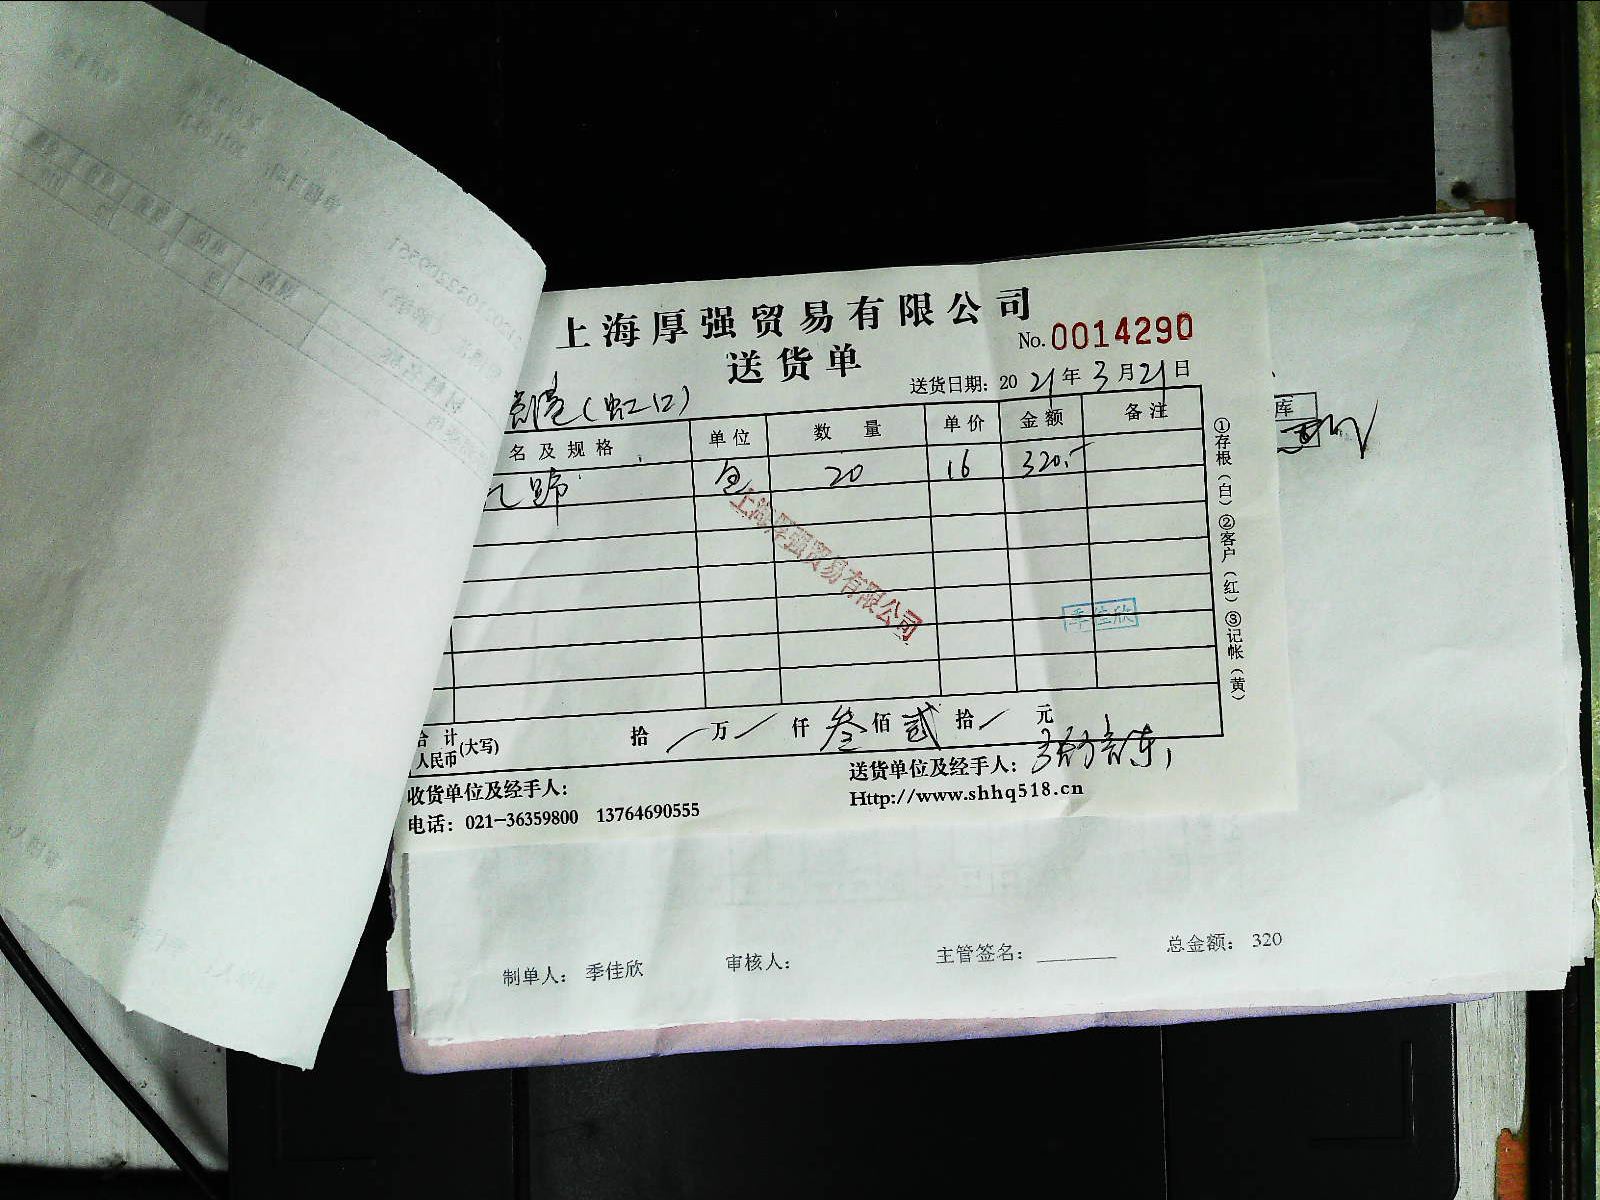 上海厚强贸易有限公司
送货单
No. 0014290
送货日期: 2021年3月21日
(虹口)
名及规格 单位 数量 单价 金额 备注
包 20 16 320.-
上海厚强贸易有限公司
季佳欣
①存根(白)②客户(红)③记帐(黄)
库
合计人民币(大写) 拾 万 仟 叁佰 贰拾 元
收货单位及经手人:
送货单位及经手人:
电话: 021-36359800 13764690555
Http://www.shhq518.cn
制单人: 季佳欣 审核人: 主管签名: 总金额: 320